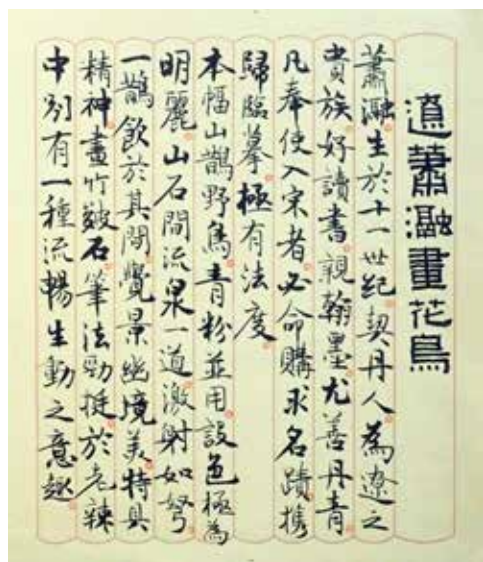 遼蕭瀜畫花鳥
蕭瀜生於十一世紀契丹人為遼之
貴族好讀書親翰墨尤善丹青
凡奉使入宋者必命購求名蹟攜
歸臨摹極有法度
本幅山鵲野鳥青粉並用設色極為
明麗山石間流泉一道激射如弩
一鵲飲於其間覺景幽境美特具
精神畫竹皴石筆法勁挺於老辣
中別有一種流暢生動之意趣